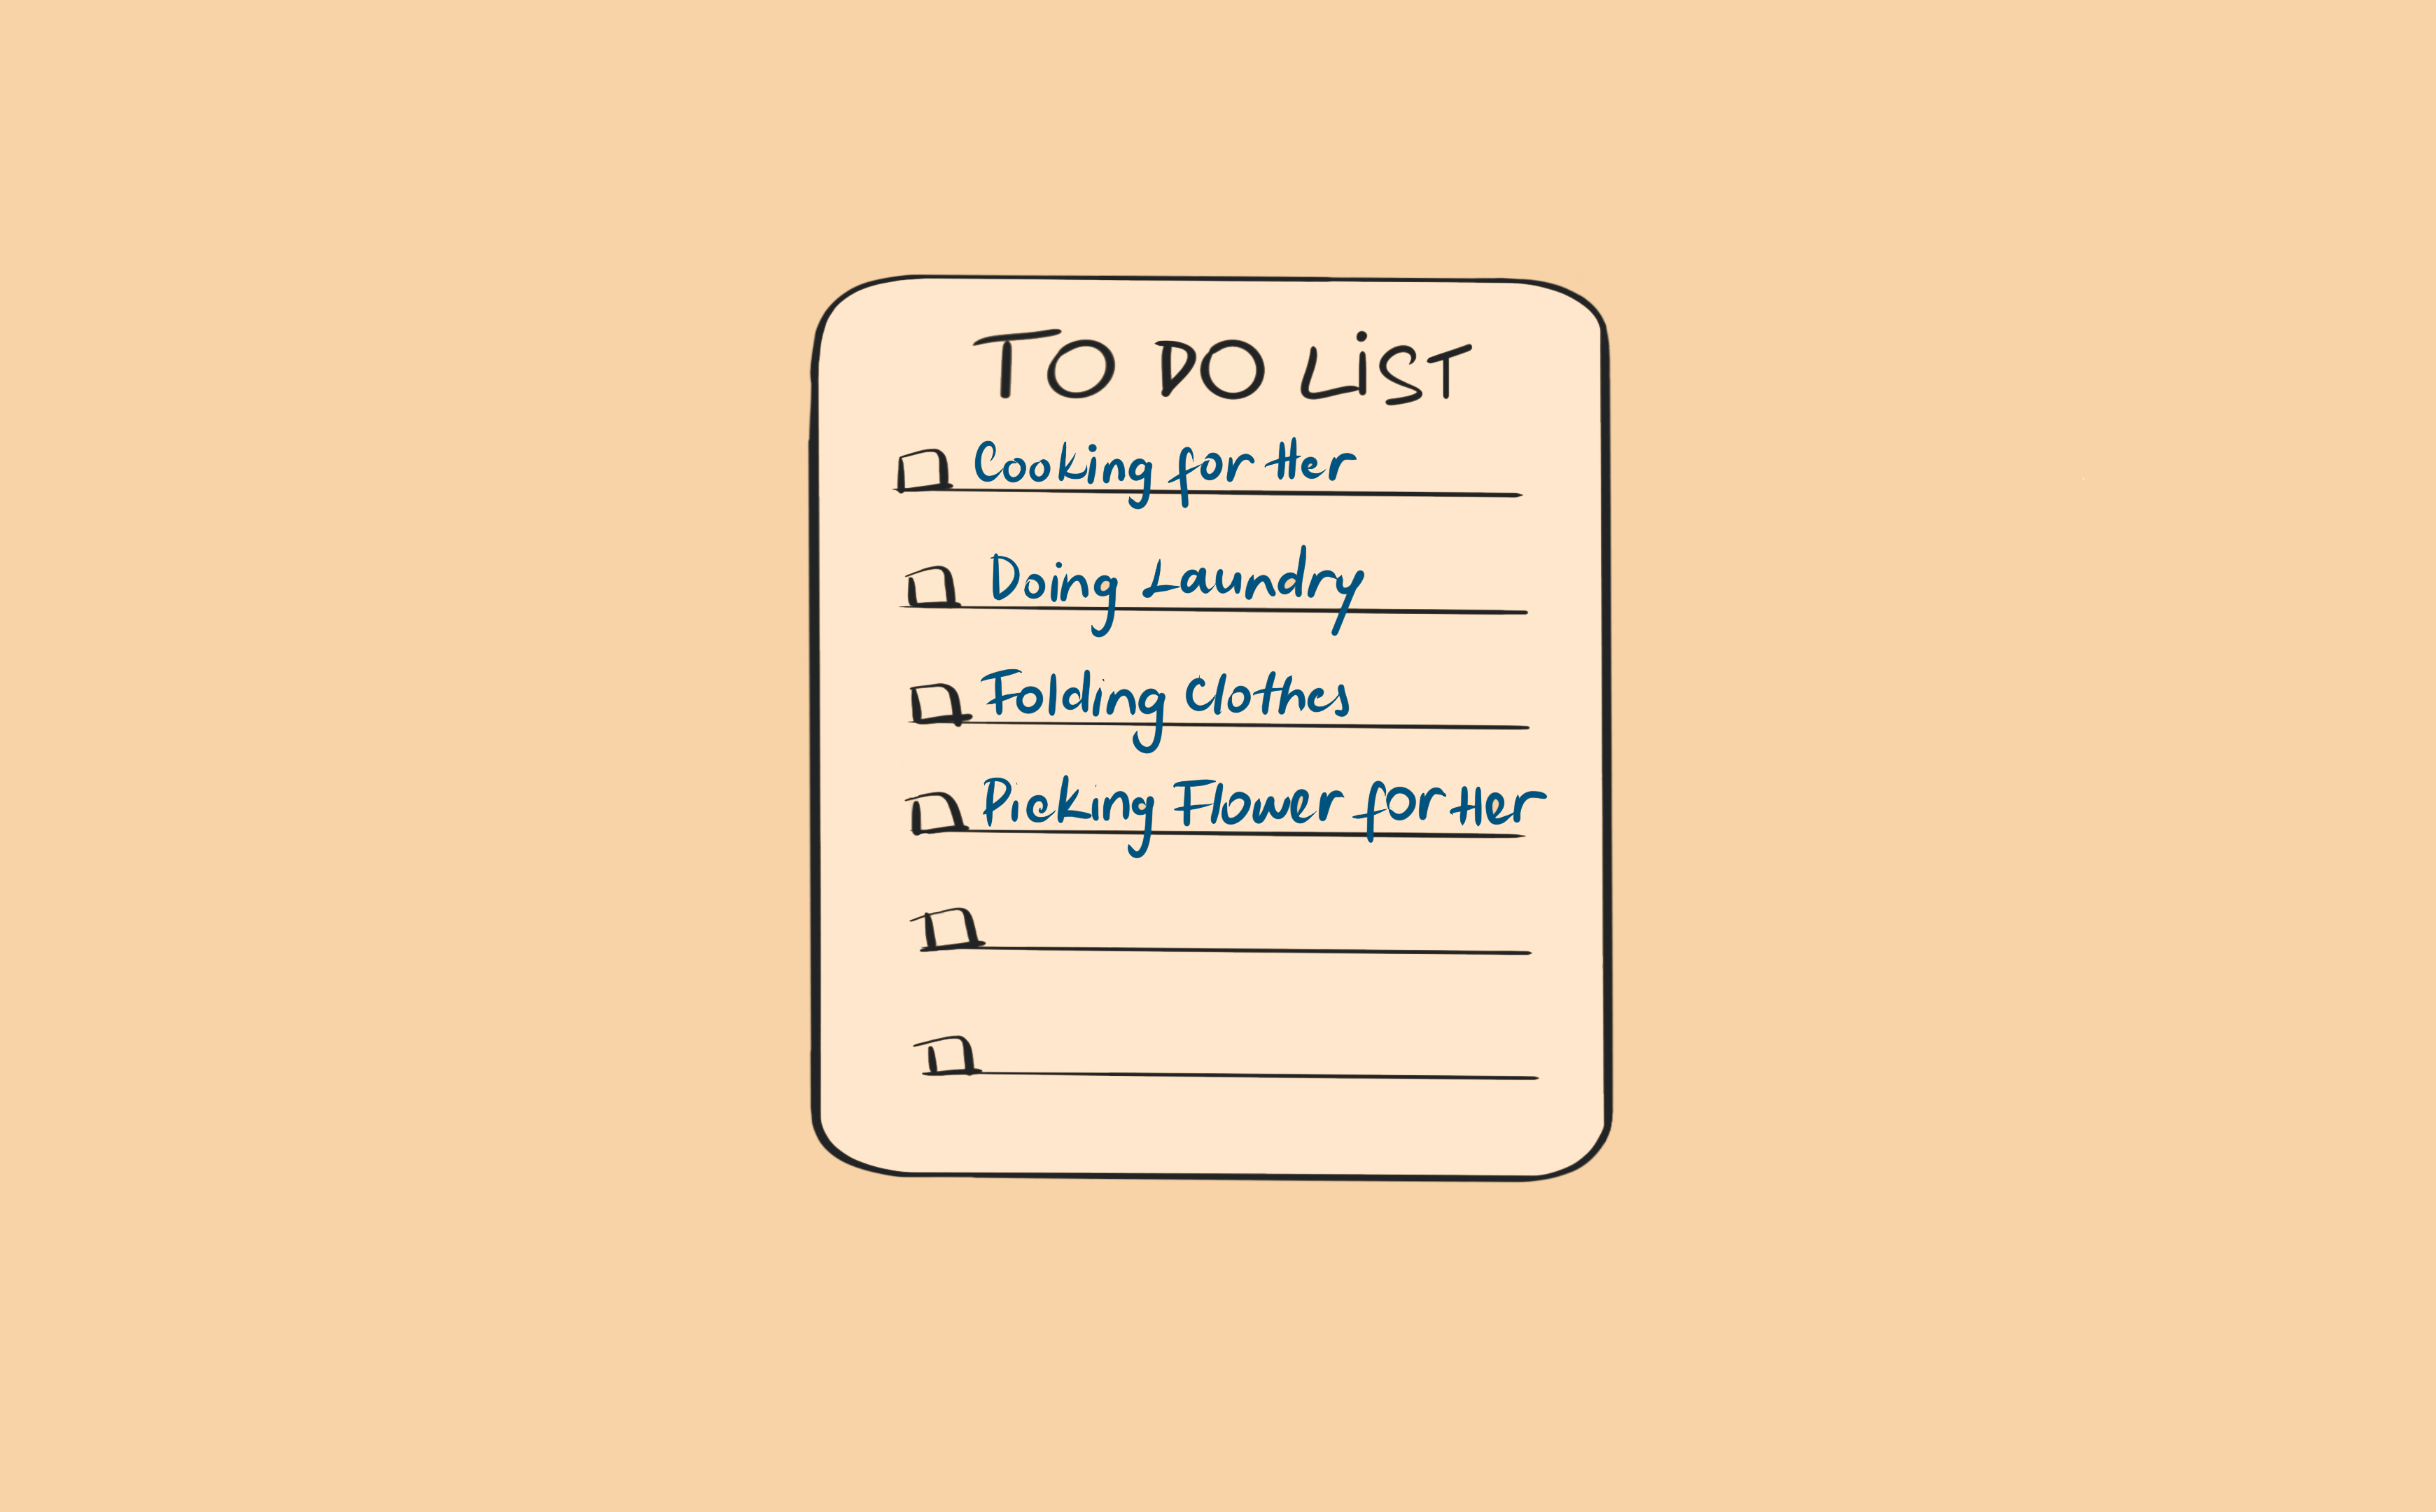 TO DO LiST
Cooking for Her
Doing Laundry
Folding Clothes
Picking Flower for Her